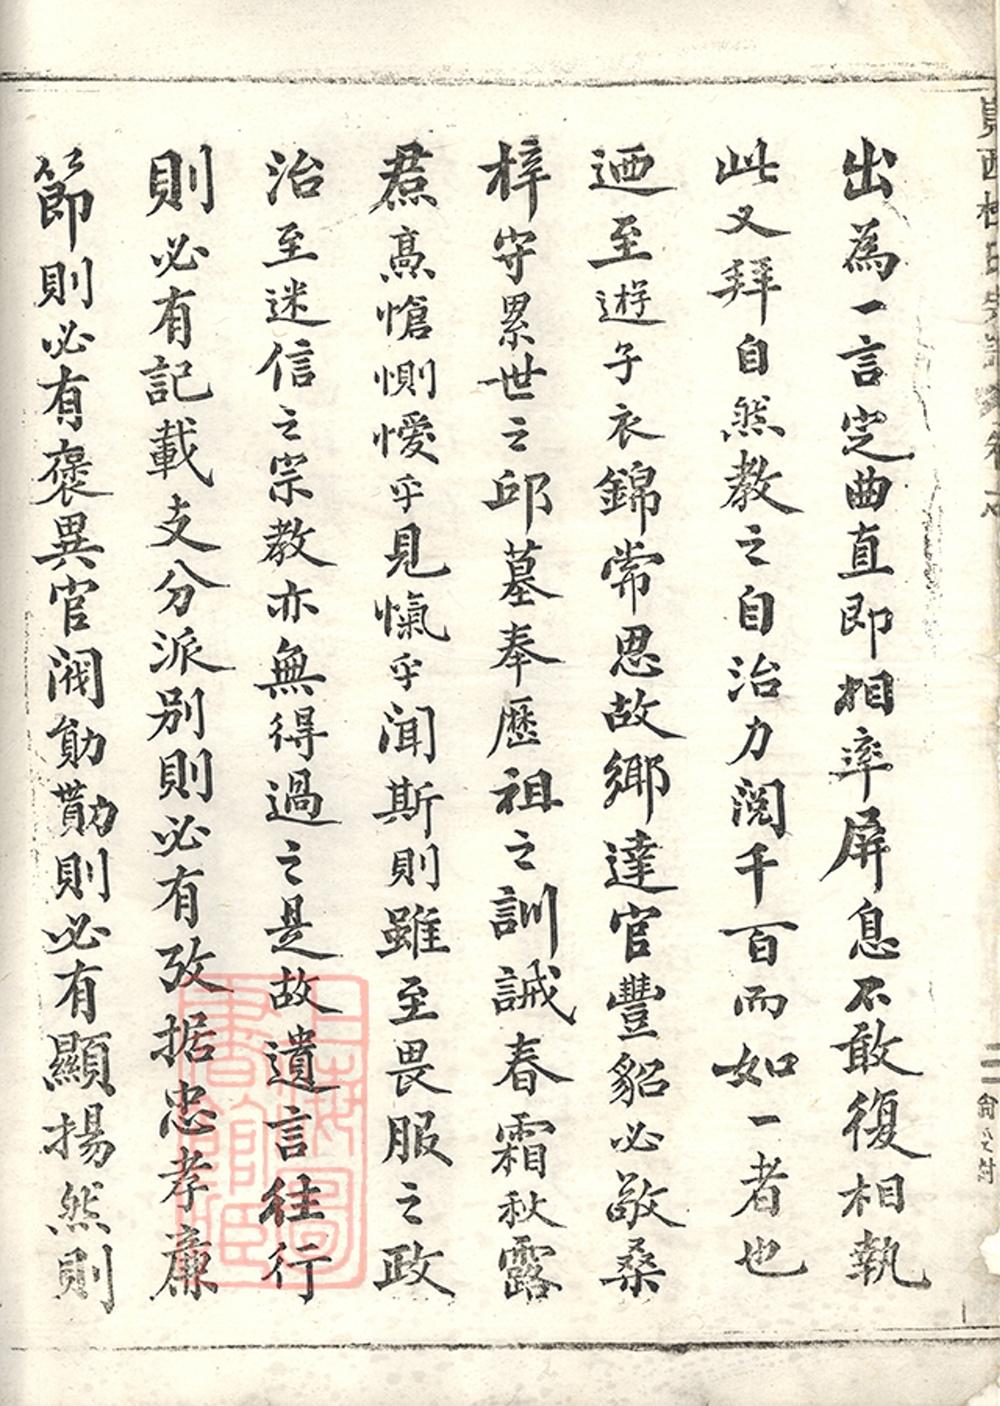 出為一言定曲直即相率屏息不敢復相執
此又拜自然教之自治力閱千百而如一者也
迺至遊子衣錦常思故鄉達官豐貂必敬桑
梓守累世之邱墓奉歷祖之訓誡春霜秋露
焄蒿愴惻懓乎見愾乎聞斯則雖至畏服之政
治至迷信之宗教亦無得過之是故遺言往行
則必有記載支分派別則必有攷据忠孝廉
節則必有褒異官閥勛勩則必有顯揚然則
上海圖書館藏